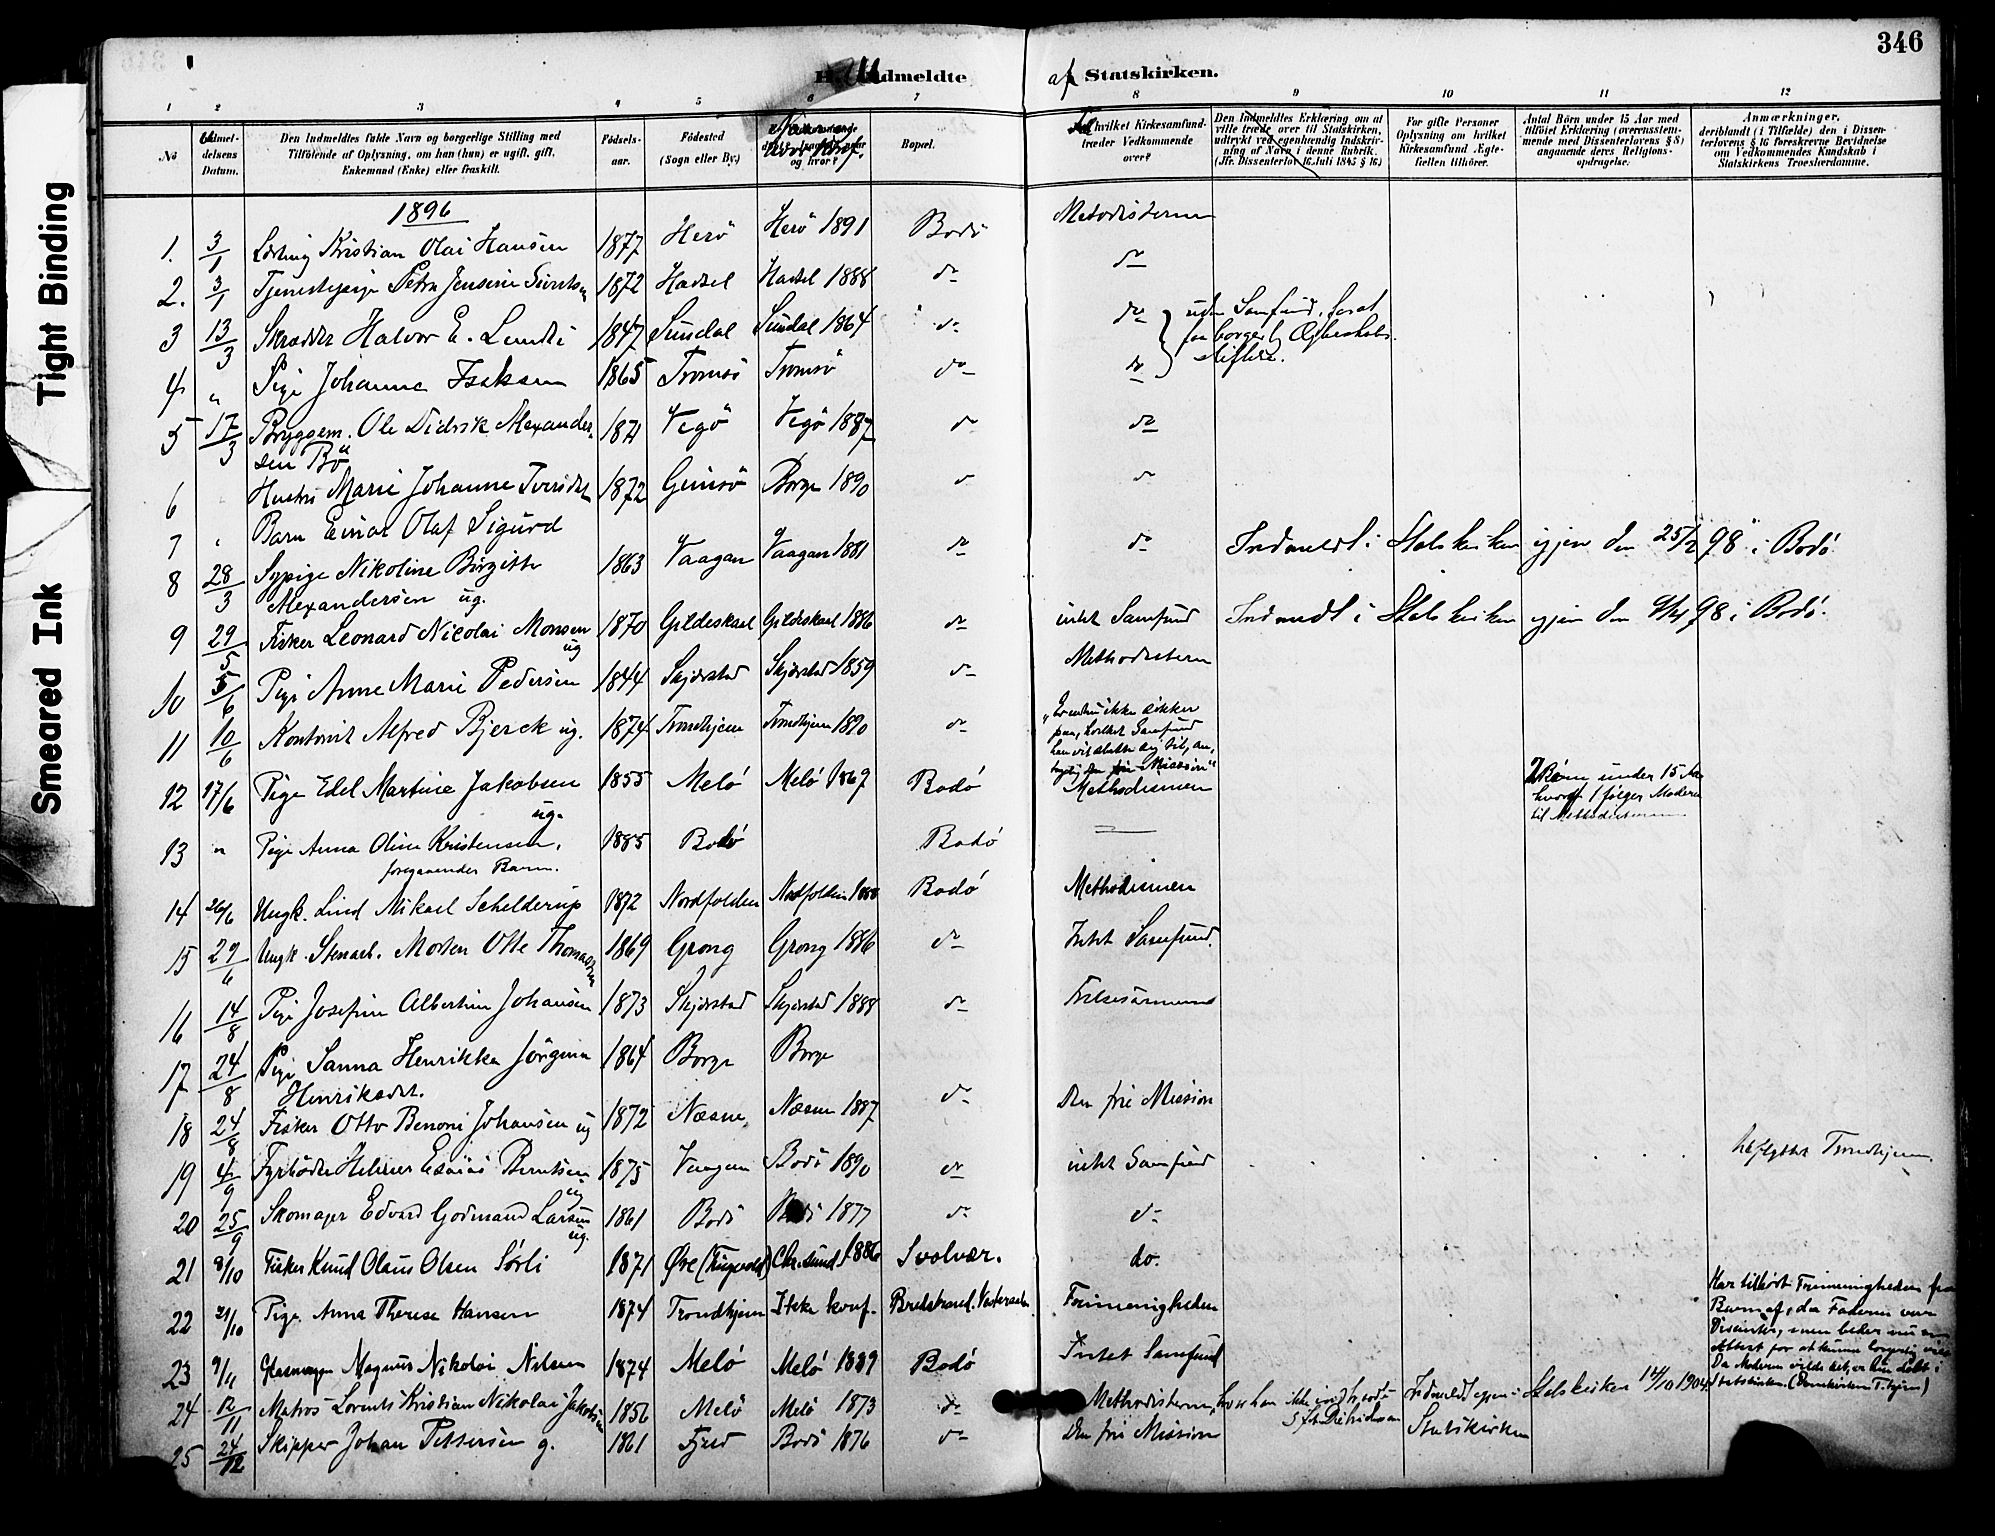 346
Tight Binding
Smeared Ink
Udmeldte af Statskirken.
1 2 3 4 5 6 7 8 9 10 11 12
No
Udmel-
delsens
Datum.
Den Indmeldtes fulde Navn og borgerlige Stilling med
Tilföiende af Oplysning, om han (hun) er ugift, gift,
Enkemand (Enke) eller fraskilt.
Födsels-
aar.
Födested
(Sogn eller By.)
Naar og
hvor Konf.
Bopæl.
Til hvilket Kirkesamfund
træder Vedkommende
over?
Den Indmeldtes Erklæring om at
ville træde over til Statskirken,
udtrykt ved egenhændig Indskriv-
ning af Navn i denne Rubrik.
(Jfr. Dissenterlov 16 Juli 1845 § 16)
For gifte Personer
Oplysning om hvilket
Kirkesamfund Ægte-
fællen tilhörer.
Antal Börn under 15 Aar med
tilföiet Erklæring (overensstem-
mende med Dissenterlovens § 8)
angaaende deres Religions-
opdragelse.
Anmærkninger,
deriblandt (i Tilfælde) den i Dissen-
terlovens § 16 foreskrevne Bevidnelse
om Vedkommendes Kundskab i
Statskirkens Troeslærdomme.
1896
1. 3/1 Lærling Kristian Olai Hansen 1877 Herö Herö 1891 Bodö Metodisterne
2. 3/1 Tjenestepige Petra Jensine Sivertsen 1872 Hadsel Hadsel 1888 do do
3 13/3 Skrædder Halvor E. Lundli 1847 Sundal Sundal 1864 do do uden Samfund, forat
faa borgerlig Ægteskabs
stiftelse.
4 " Pige Johanne Isaksen 1865 Tromsö Tromsö do do
5 17/3 Bryggem. Ole Didrik Alexander-
sen Bö 1871 Vegö Vegö 1887 do do
6 " Hustru Marie Johanne Iversdtr 1872 Gimsö Borge 1890 do do
7 " Barn Einar Olaf Sigurd
8 28/3 Sypige Nikoline Birgitte
Alexandersen ug. 1863 Vaagan Vaagan 1881 do do Indmeldt i Statskirken igjen den 25/2 98 i Bodö
9 29/5 Fisker Leonard Nicolai Monsen
ug 1870 Gildeskaal Gildeskaal 1886 do intet Samfund Indmeldt i Statskirken igjen den 98 i Bodö.
10 5/6 Pige Anne Marie Pedersen 1844 Skjerstad Skjerstad 1859 do Methodistern
11 10/6 Kontorist Alfred Bjerck ug. 1874 Trondhjem Trondhjem 1890 do "Er endnu ikke sikker
paa, hvilket Samfund
han vil slutte sig til, an-
tagelig den frie Mission"
12 17/6 Pige Edel Martine Jakobsen
ug. 1855 Melö Melö 1869 Bodö Methodismen 2 Börn under 15 Aar
hvoraf 1 følger Moderen
til Methodisterne
13 " Pige Anna Oline Kristensen,
foregaaendes Barn. 1885 Bodö Bodö
14 26/6 Ungk. Lind Mikael Schelderup 1872 Nordfolden Nordfolden 1888 Bodö Methodismen
15 29/6 Ungk. Stenarb. Morten Otte Thomassen 1869 Grong Grong 1886 do Intet Samfund.
16 14/8 Pige Josefine Albertine Johansen 1873 Skjerstad Skjerstad 1888 do Frelsesarmeen
17 24/8 Pige Sanna Henrikka Jörgine
Henriksdtr. 1864 Borge Borge do Den frie Mission
18 24/8 Fisker Otto Benoni Johansen ug 1872 Næsne Næsne 1887
19 4/9 Fyrbøder Helmer Esaias Berntsen
ug 1875 Vaagan Bodö 1890 do intet Samfund Udflyttet Trondhjem.
20 25/9 Skomager Edvard Godmand Larsen
ug. 1861 Bodö Bodö 1877 do do
21 9/10 Fisker Knud Olaus Olsen Sörli 1871 Øre (Tingvold) Chr.sund 1886 Svolvær. do.
22 21/10 Pige Anna Therese Hansen 1874 Trondhjem Ikke konf. Bredstrand. Vesteraalen Frimenigheden Har tilhört Frimenigheden fra
Barn af, da Faderen var
Dissenter, men beder nu om
Attest for at kunne borgerlig vies
Da Moderen vilde det, er hun døbt i
Statskirken. (Domkirken T.hjem)
23 9/11 Glasmager Magnus Nikolai Nilsen 1874 Melö Melö 1889 Bodö Intet Samfund
24 12/11 Matros Lorents Kristian Nikolai Jakobsen 1856 Melö Melö 1873 do Methodisterne, hvor han ikke indtraadte Indmeldt igjen i Statskirken 14/10 1904
25 24/12 Skipper Johan Pettersen g. 1861 Bodö 1876 do Den frie Mission Statskirken